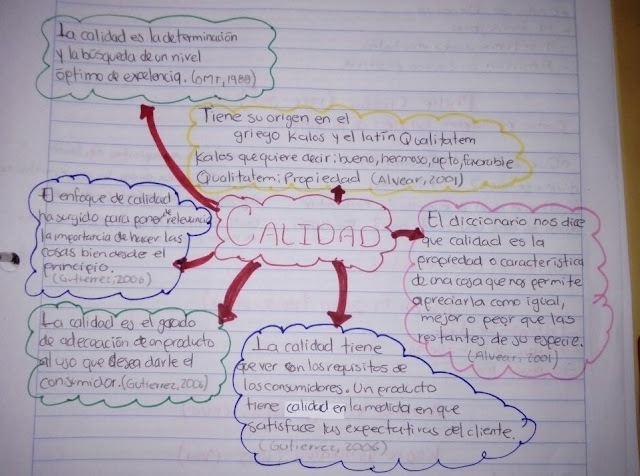 La calidad es la determinación
y la búsqueda de un nivel
óptimo de excelencia. (OMT, 1988)
Tiene su origen en el
griego Kalos y el latín Qualitatem
Kalos que quiere decir: bueno, hermoso, apto, favorable
Qualitatem: Propiedad (Alvear, 2001)
El enfoque de calidad
ha surgido para poner de relevancia
la importancia de hacer las
cosas bien desde el
principio.
(Gutierrez, 2006)
CALIDAD
El diccionario nos dice
que calidad es la
propiedad o característica
de una cosa que nos permite
apreciarla como igual,
mejor o peor que las
restantes de su especie.
(Alvear, 2001)
La calidad es el grado
de adecuación de un producto
al uso que desea darle el
consumidor. (Gutierrez, 2006)
La calidad tiene
que ver con los requisitos de
los consumidores. Un producto
tiene calidad en la medida en que
satisface las expectativas del cliente.
(Gutierrez, 2006)